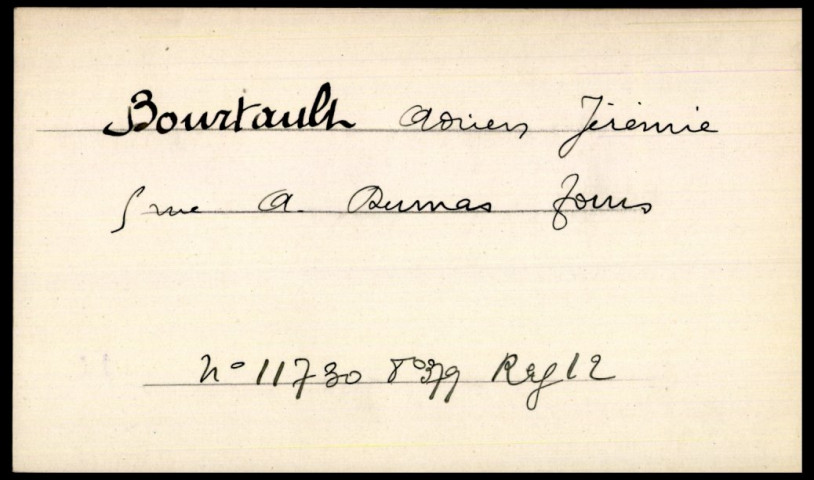 Bourtault Adrien Jérémie
5 rue A. Dumas Tours
N° 11730 F° 379 Reg 12